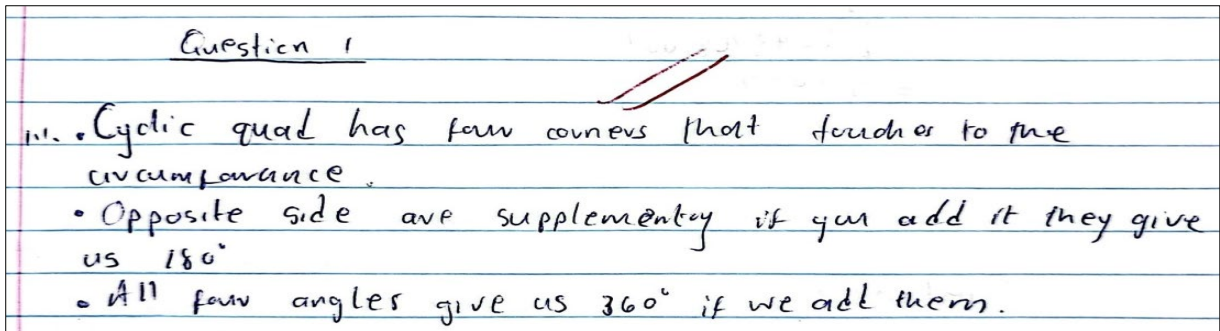 Question 1
1.1. • Cyclic quad has four corners that touches to the
circumfarance.
• Opposite side are supplementey if you add it they give
us 180°
• All four angles give us 360° if we add them.